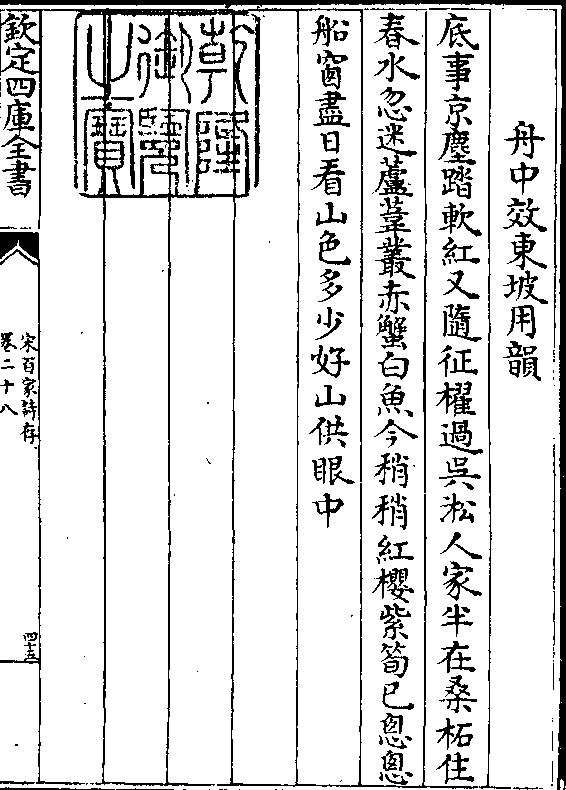 舟中效東坡用韻
底事京塵踏軟紅又隨征櫂過吳淞人家半在桑柘住
春水忽迷蘆葦叢赤蟹白魚今稍稍紅櫻紫筍已悤悤
船窗盡日看山色多少好山供眼中
乾隆御覽之寶
欽定四庫全書
宋百家詩存
卷二十八
四十五